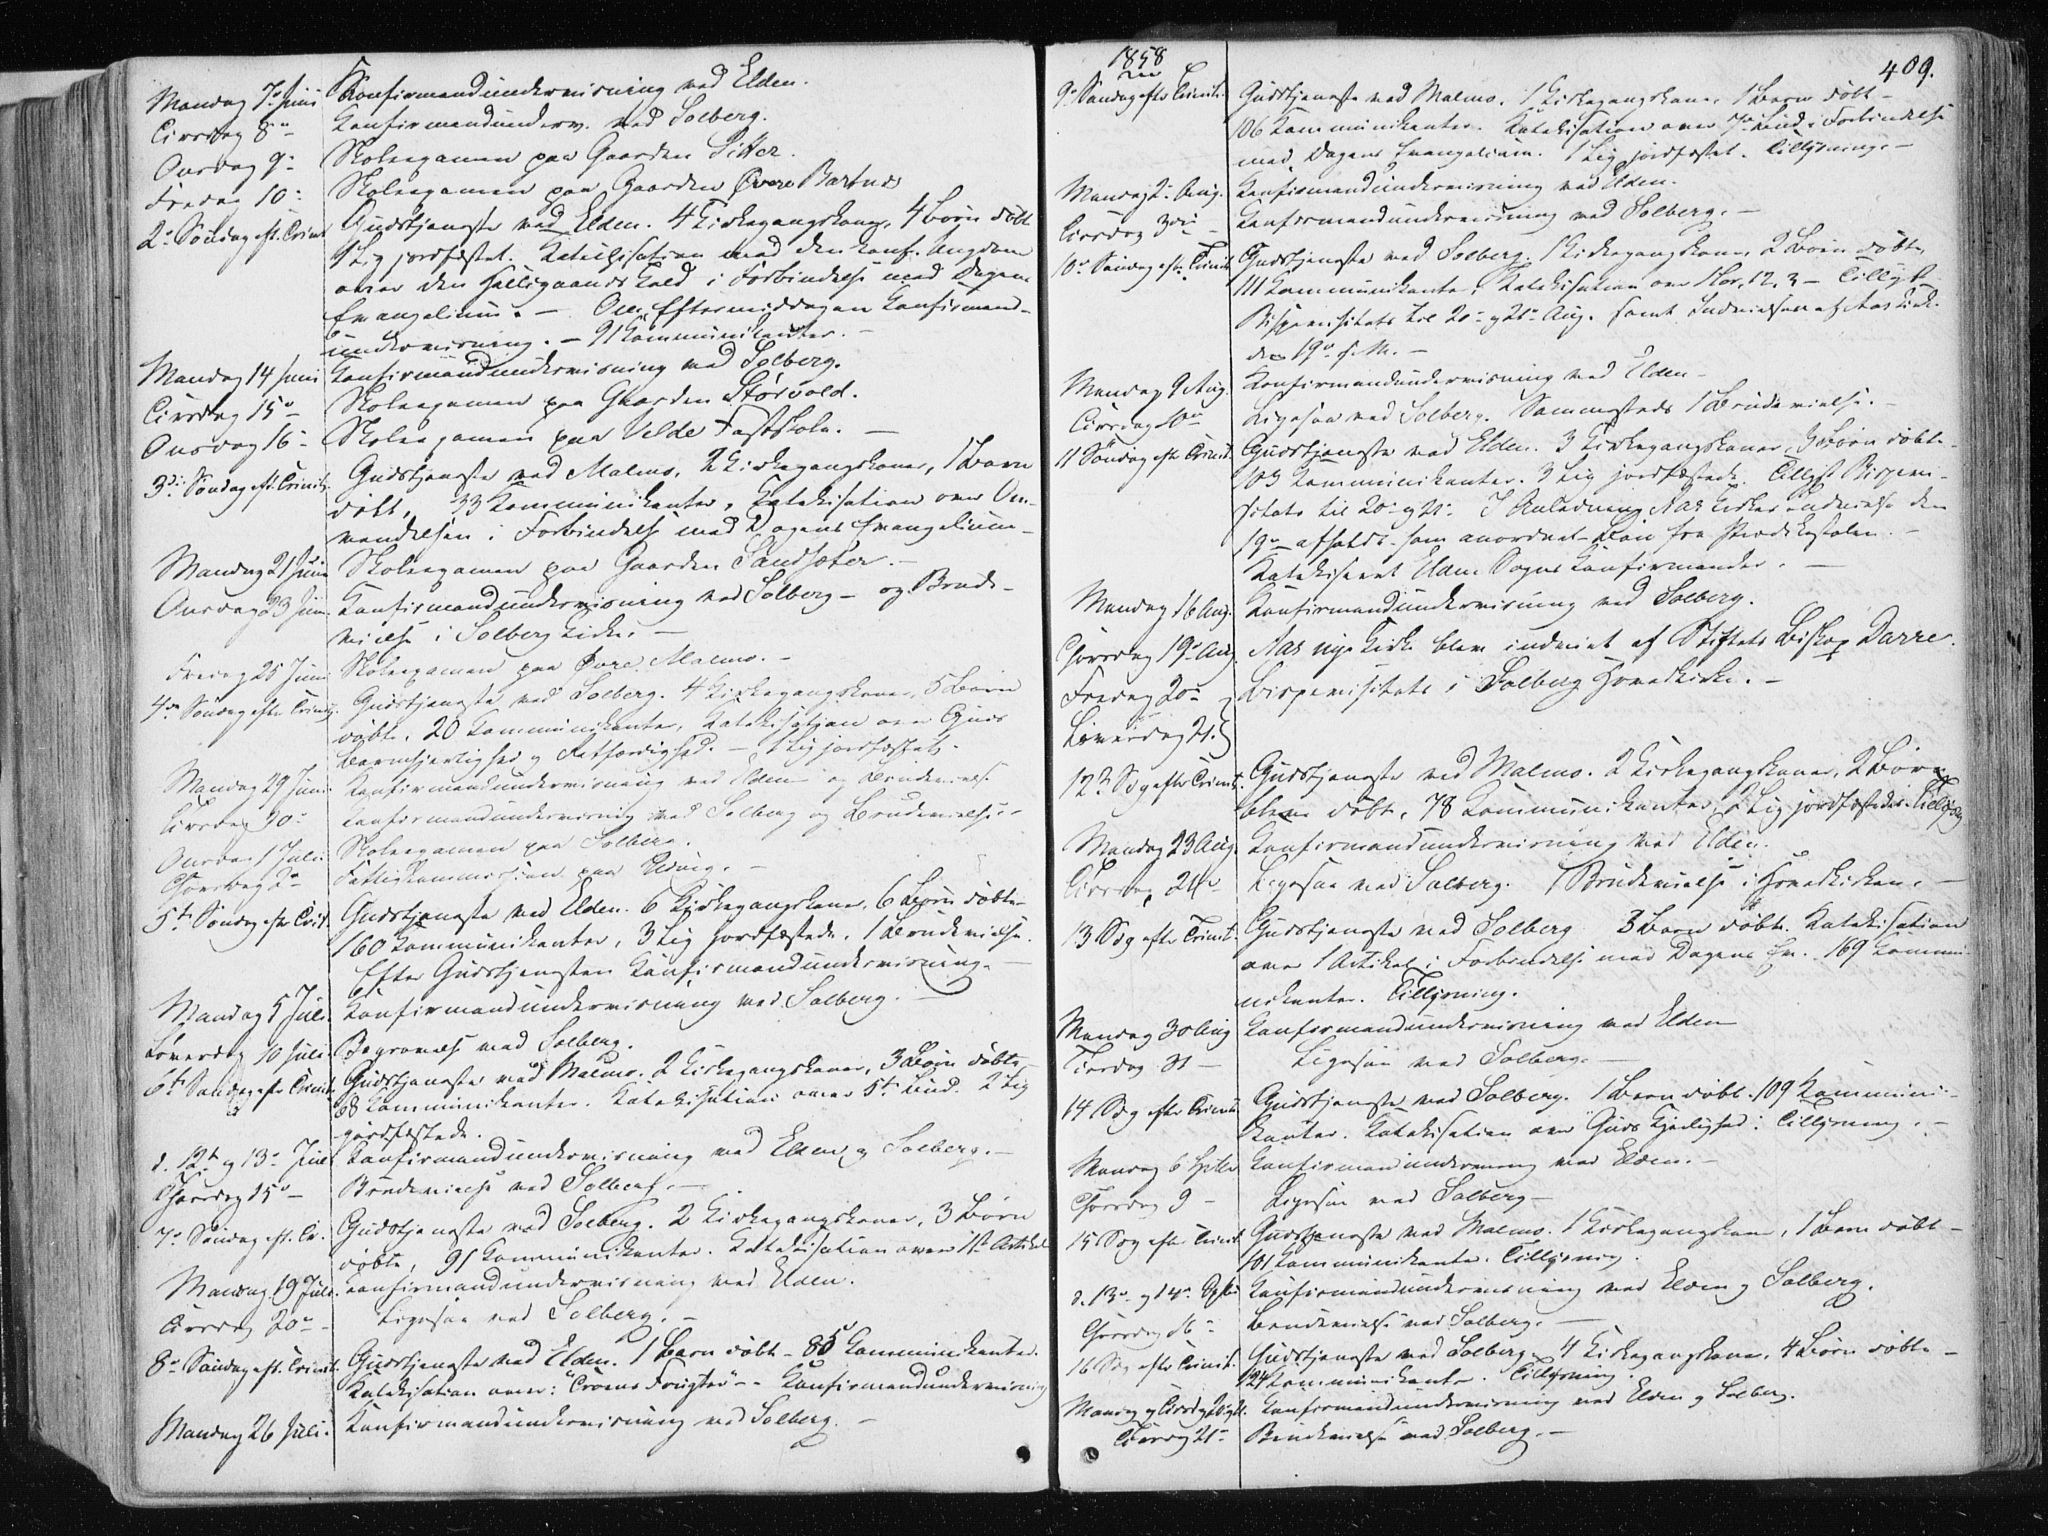 Mandag 7de Juni Konfirmandundervisning ved Elden.
Tirsdag 8de Konfirmandunderv. ved Solberg.
Onsdag 9de Skoleexamen paa Gaarden Sitter.
Fredag 10de Skoleexamen paa Gaarden Øvre Bartnes
2den Søndag eft. Trinit. Gudstjeneste ved Elden. 4 Kirkegangskoner, 4 Børn døbt
1 Lig jordfæstet. Katekisation med den konf. Ungdom
over den Helligaands Kald i Forbindelse med Dagens
Evangelium. – Om Eftermiddagen Konfirmand-
undervisning. – 91 Kommunikanter. –
Mandag 14 Juni Konfirmandundervisning ved Solberg.
Tirsdag 15de Skoleexamen paa Gaarden Størvold.
Onsdag 16de Skoleexamen paa Velde Fastskole. –
3die Søndag eft. Trinit. Gudstjeneste ved Malmo. 2 Kirkegangskoner, 1 Barn
døbt, 33 Kommunikanter, Katekisation over Om-
vendelsen i Forbindelse med Dagens Evangelium –
Mandag 21 Juni Skoleexamen paa Gaarden Landsæter. –
Onsdag 23 Juni Konfirmandundervisning ved Solberg – og Brude-
vielse i Solberg Kirke. –
Fredag 25 Juni Skoleexamen paa Øvre Malmo. –
4de Søndag efter Trinit. Gudstjeneste ved Solberg. 4 Kirkegangskoner, 5 Børn
døbte. 20 Kommunikanter, Katekisation over Guds
Barmhjertighed og Retfærdighed. – 1 Lig jordfæstet.
Mandag 29 Juni Konfirmandundervisning ved Elden og Brudevielse
Tirsdag 30 Konfirmandundervisning ved Solberg og Brudevielse. –
Onsdag 1 Juli Skoleexamen paa Solberg.
Thorsdag 2den Fattigkommission paa
5te Søndag efter Trit. Gudstjeneste ved Elden. 6 Kirkegangskoner, 6 Børn døbte –
160 Kommunikanter, 3 Lig jordfæstede, 1 Brudevielse.
Efter Gudstjenesten Konfirmandundervisning. –
Mandag 5 Juli Konfirmandundervisning ved Solberg. –
Løverdag 10 Juli Begravelse ved Solberg.
6te Søndag efter Trinit. Gudstjeneste ved Malmo. 2 Kirkegangskoner, 3 Børn døbte
68 Kommunikanter. Katekisation over 5te Bud. 2 Lig
jordfæstede.
d. 12te og 13de Juli Konfirmandundervisning ved Elden og Solberg. –
Thorsdag 15de – Brudevielse ved Solberg. –
7de Søndag eft. Tr. Gudstjeneste ved Solberg. 2 Kirkegangskoner, 3 Børn
døbte, 91 Kommunikanter. Katekisation over 1ste Artikel
Mandag 19 Juli Konfirmandundervisning ved Elden.
Tirsdag 20de – Ligesaa ved Solberg. –
8de Søndag eft. Trinit. Gudstjeneste ved Elden. 1 Barn døbt – 85 Kommunikanter.
Katekisation over: "Troens Frugter" – Konfirmandundervisning
Mandag 26 Juli. Konfirmandundervisning ved Solberg. –
1858
409.
9de Søndag efter Trinit. Gudstjeneste ved Malmo. 1 Kirkegangskone, 1 Barn døbt –
106 Kommunikanter. Katekisation over 7de Bud i Forbindelse
med Dagens Evangelium. 1 Lig jordfæstet. Tillysning. –
Mandag 2den Aug. Konfirmandundervisning ved Elden.
Tirsdag 3die – Konfirmandundervisning ved Solberg. –
10de Søndag eft. Trinit. Gudstjeneste ved Solberg. 1 Kirkegangskone, 2 Børn døbte,
111 Kommunikanter, Katekisation over 1 Kor. 12, 3 – Tillyst
Bispevisitats til 20de og 21de Aug. samt Indvielsen af Aas Kirke
den 19de s. M. –
Mandag 9 Aug. Konfirmandundervisning ved Elden –
Tirsdag 10de Ligesaa ved Solberg. Sammesteds 1 Brudevielse. –
11 Søndag eft. Trinit. Gudstjeneste ved Elden. 3 Kirkegangskoner, 3 Børn døbte –
103 Kommunikanter. 3 Lig jordfæstede. Tillyst Bispevi-
sitats til 20de og 21de I Anledning Aas Kirkes Indvielse den
19de afholdt som anordnet Bøn fra Prædikestolen. –
Katekiseret Elden Sogns Konfirmander. –
Mandag 16 Aug. Konfirmandundervisning ved Solberg.
Thorsdag 19de Aug. Aas nye Kirke blev indviet af Stiftets Biskop Darre.
Fredag 20de og Bispevisitats i Solberg Hovedkirke. –
Løverdag 21.
12te Søg efter Trinit. Gudstjeneste ved Malmo. 2 Kirkegangskoner, 2 Børn
bleve døbt, 78 Kommunikanter, 2 Lig jordfæstede. Tillysng
Mandag 23 Aug. Konfirmandundervisning ved Elden.
Tirsdag 24de Ligesaa ved Solberg. 1 Brudevielse i Hovedkirken. –
13 Søg efter Trinit. Gudstjeneste ved Solberg 3 Børn døbt. Katekisation
over 1 Artikel i Forbindelse med Dagens Ev. 169 Kommu-
nikanter. Tillysning.
Mandag 30 Aug Konfirmandundervisning ved Elden
Tirsdag 31 – Ligesaa ved Solberg. –
14 Søg efter Trinit. Gudstjeneste ved Solberg. 1 Barn døbt. 109 Kommuni-
kanter. Katekisation over Guds Kjerlighed: Tillysning. –
Mandag 6 Septbr Konfirmandundervisning ved Elden. –
Thorsdag 9 – Ligesaa ved Solberg –
15 Søg efter Trinit. Gudstjeneste ved Malmo. 1 Kirkegangskone, 1 Barn døbt –
101 Kommunikanter. Tillysning.
d. 13de og 14de Septbr Konfirmandundervisning ved Elden og Solberg.
Thorsdag 16de Brudevielse ved Solberg. –
16 Søg efter Trinit. Gudstjeneste ved Solberg. 4 Kirkegangskoner, 4 Børn døbte –
124 Kommunikanter. Tillysning.
Mandag og Tirsdag Konfirmandundervisning ved Elden og Solberg.
Tirsdag 21de Brudevielse ved Solberg. –